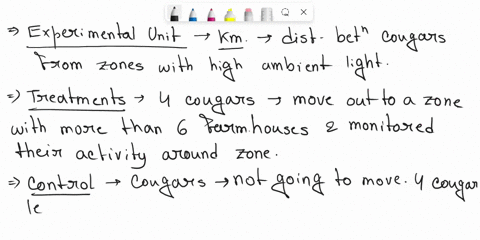 ⇒ Experimental Unit → Km. → dist. betⁿ cougars
from zones with high ambient light.
⇒ Treatments → 4 cougars → move out to a zone
with more than 6 farmhouses & monitored
their activity around zone.
⇒ Control → Cougars → not going to move. 4 cougar
le